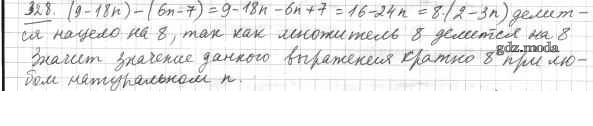 328. (9-18n)-(6n-7)=9-18n-6n+7=16-24n=8·(2-3n) делит-
ся нацело на 8, так как множитель 8 делится на 8
Значит значение данного выражения кратно 8 при лю-
бом натуральном n.
gdz.moda